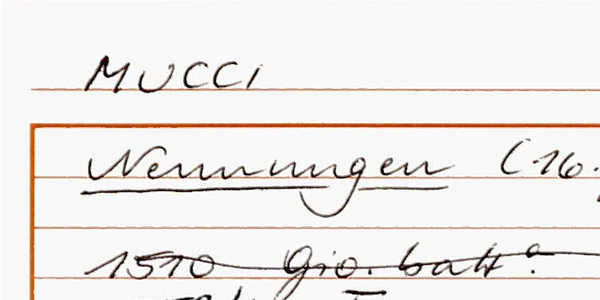 MUCCI
Nennungen (16.
1510 Gio. batt.ª